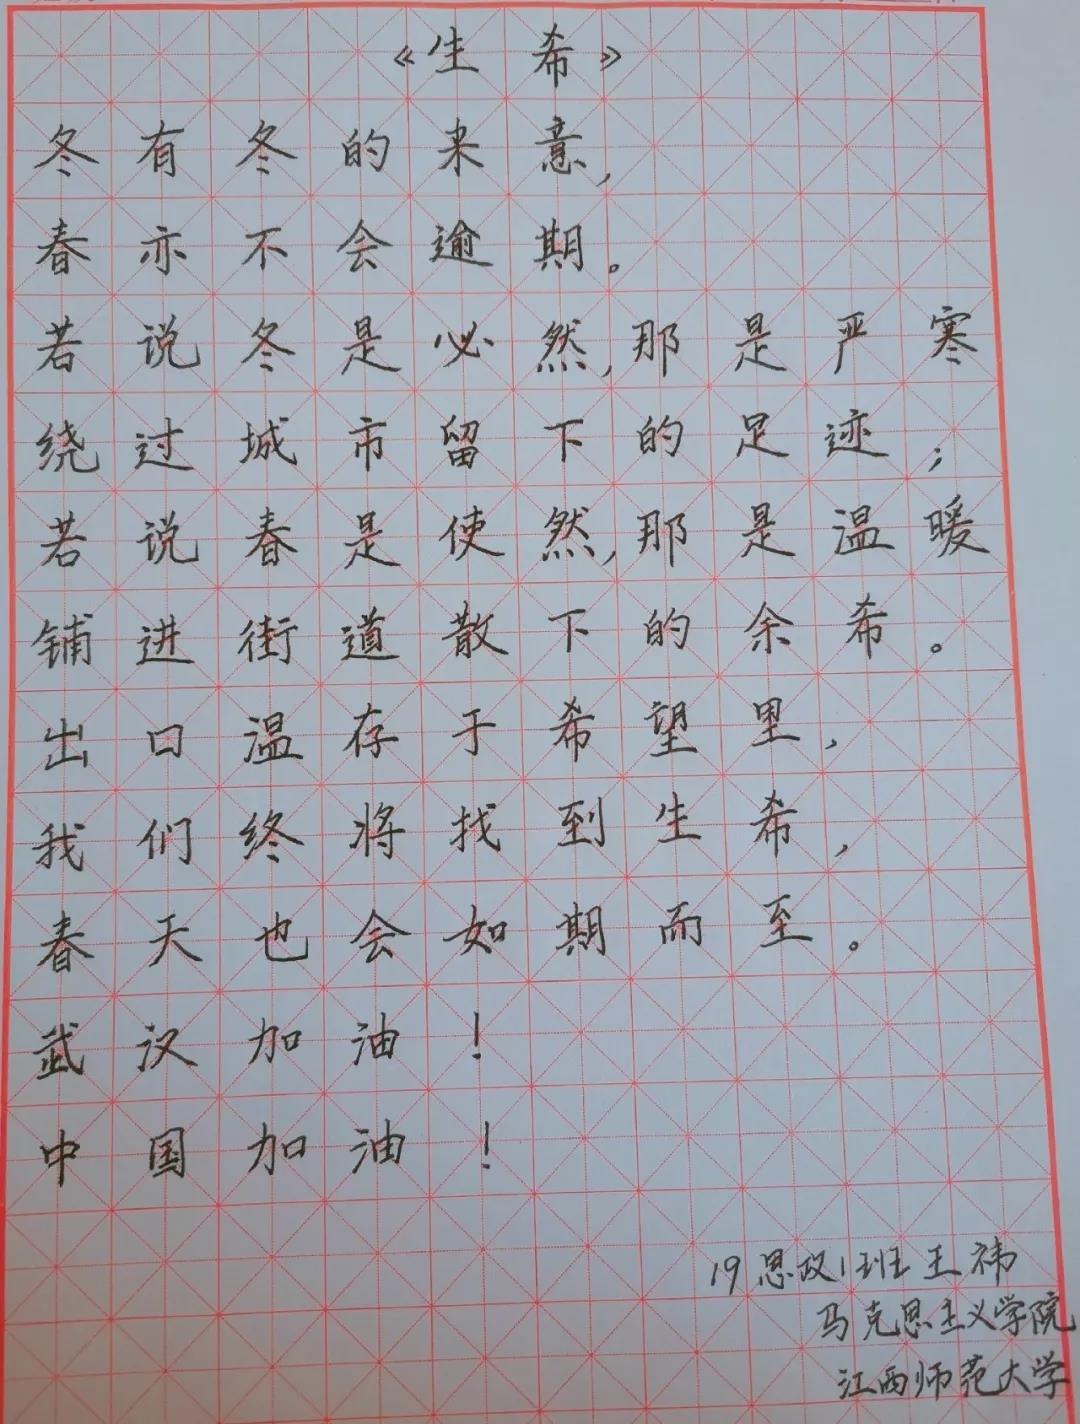 《生希》
冬有冬的来意,
春亦不会逾期。
若说冬是必然,那是严寒
绕过城市留下的足迹;
若说春是使然,那是温暖
铺进街道散下的余希。
出口温存于希望里,
我们终将找到生希,
春天也会如期而至。
武汉加油!
中国加油!
19思政1班王祎
马克思主义学院
江西师范大学